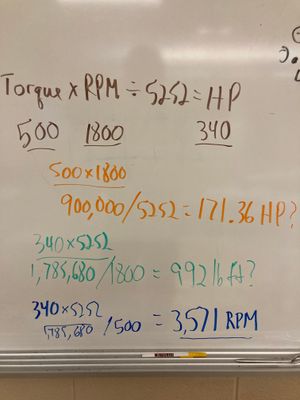 Torque x RPM ÷ 5252 = HP
500 1800 340
500 x 1800
900,000/5252 = 171.36 HP?
340 x 5252
1,785,680/1800 = 992 lb ft?
340 x 5252
1,785,680/500 = 3,571 RPM